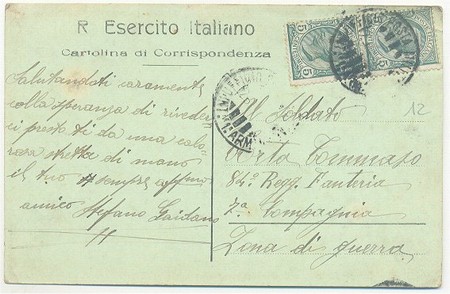 R Esercito Italiano
Cartolina di Corrispondenza
Salutandoti caramente
colla speranza di rivederci
presto ti da una calo-
rosa stretta di mano
il tuo sempre
amico Stefano
Al Soldato
Orto Tommaso
84º Regg. Fanteria
7ª Compagnia
Zona di guerra
12
5
5
5
5